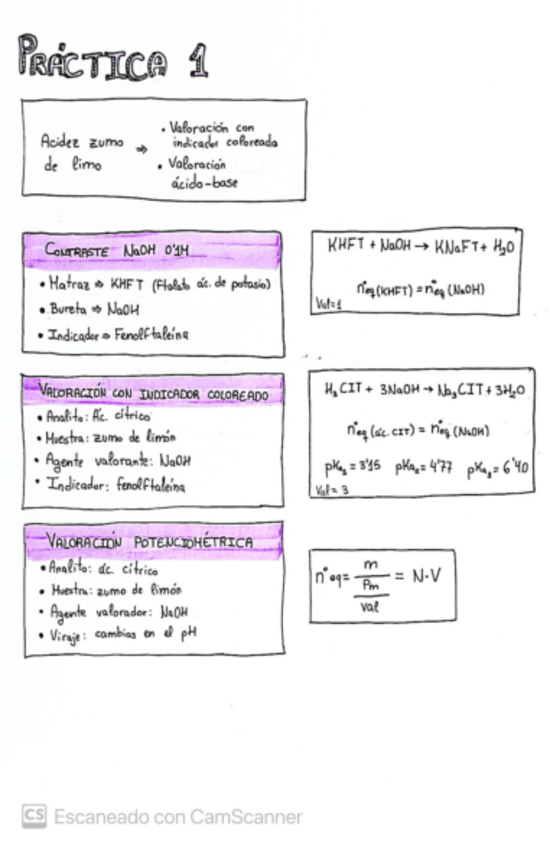 PRÁCTICA 1
Acidez zumo de limo ⇒
• Valoración con
indicador coloreada
• Valoración
ácido-base
CONTRASTE NaOH 0'1M
• Matraz ⇒ KHFT (Ftalato ác. de potasio)
• Bureta ⇒ NaOH
• Indicador ⇒ Fenolftaleína
KHFT + NaOH → KNaFT + H₂O
n°eq (KHFT) = n°eq (NaOH)
Val=1
VALORACIÓN CON INDICADOR COLOREADO
• Analito: Ác. cítrico
• Muestra: zumo de limón
• Agente valorante: NaOH
• Indicador: fenolftaleína
H₃CIT + 3NaOH → Na₃CIT + 3H₂O
n°eq (ác. CIT) = n°eq (NaOH)
pKa₁ = 3'15 pKa₂ = 4'77 pKa₃ = 6'40
Val = 3
VALORACIÓN POTENCIOMÉTRICA
• Analito: ác. cítrico
• Muestra: zumo de limón
• Agente valorador: NaOH
• Viraje: cambios en el pH
n°eq = m / (Pm / val) = N·V
CS Escaneado con CamScanner